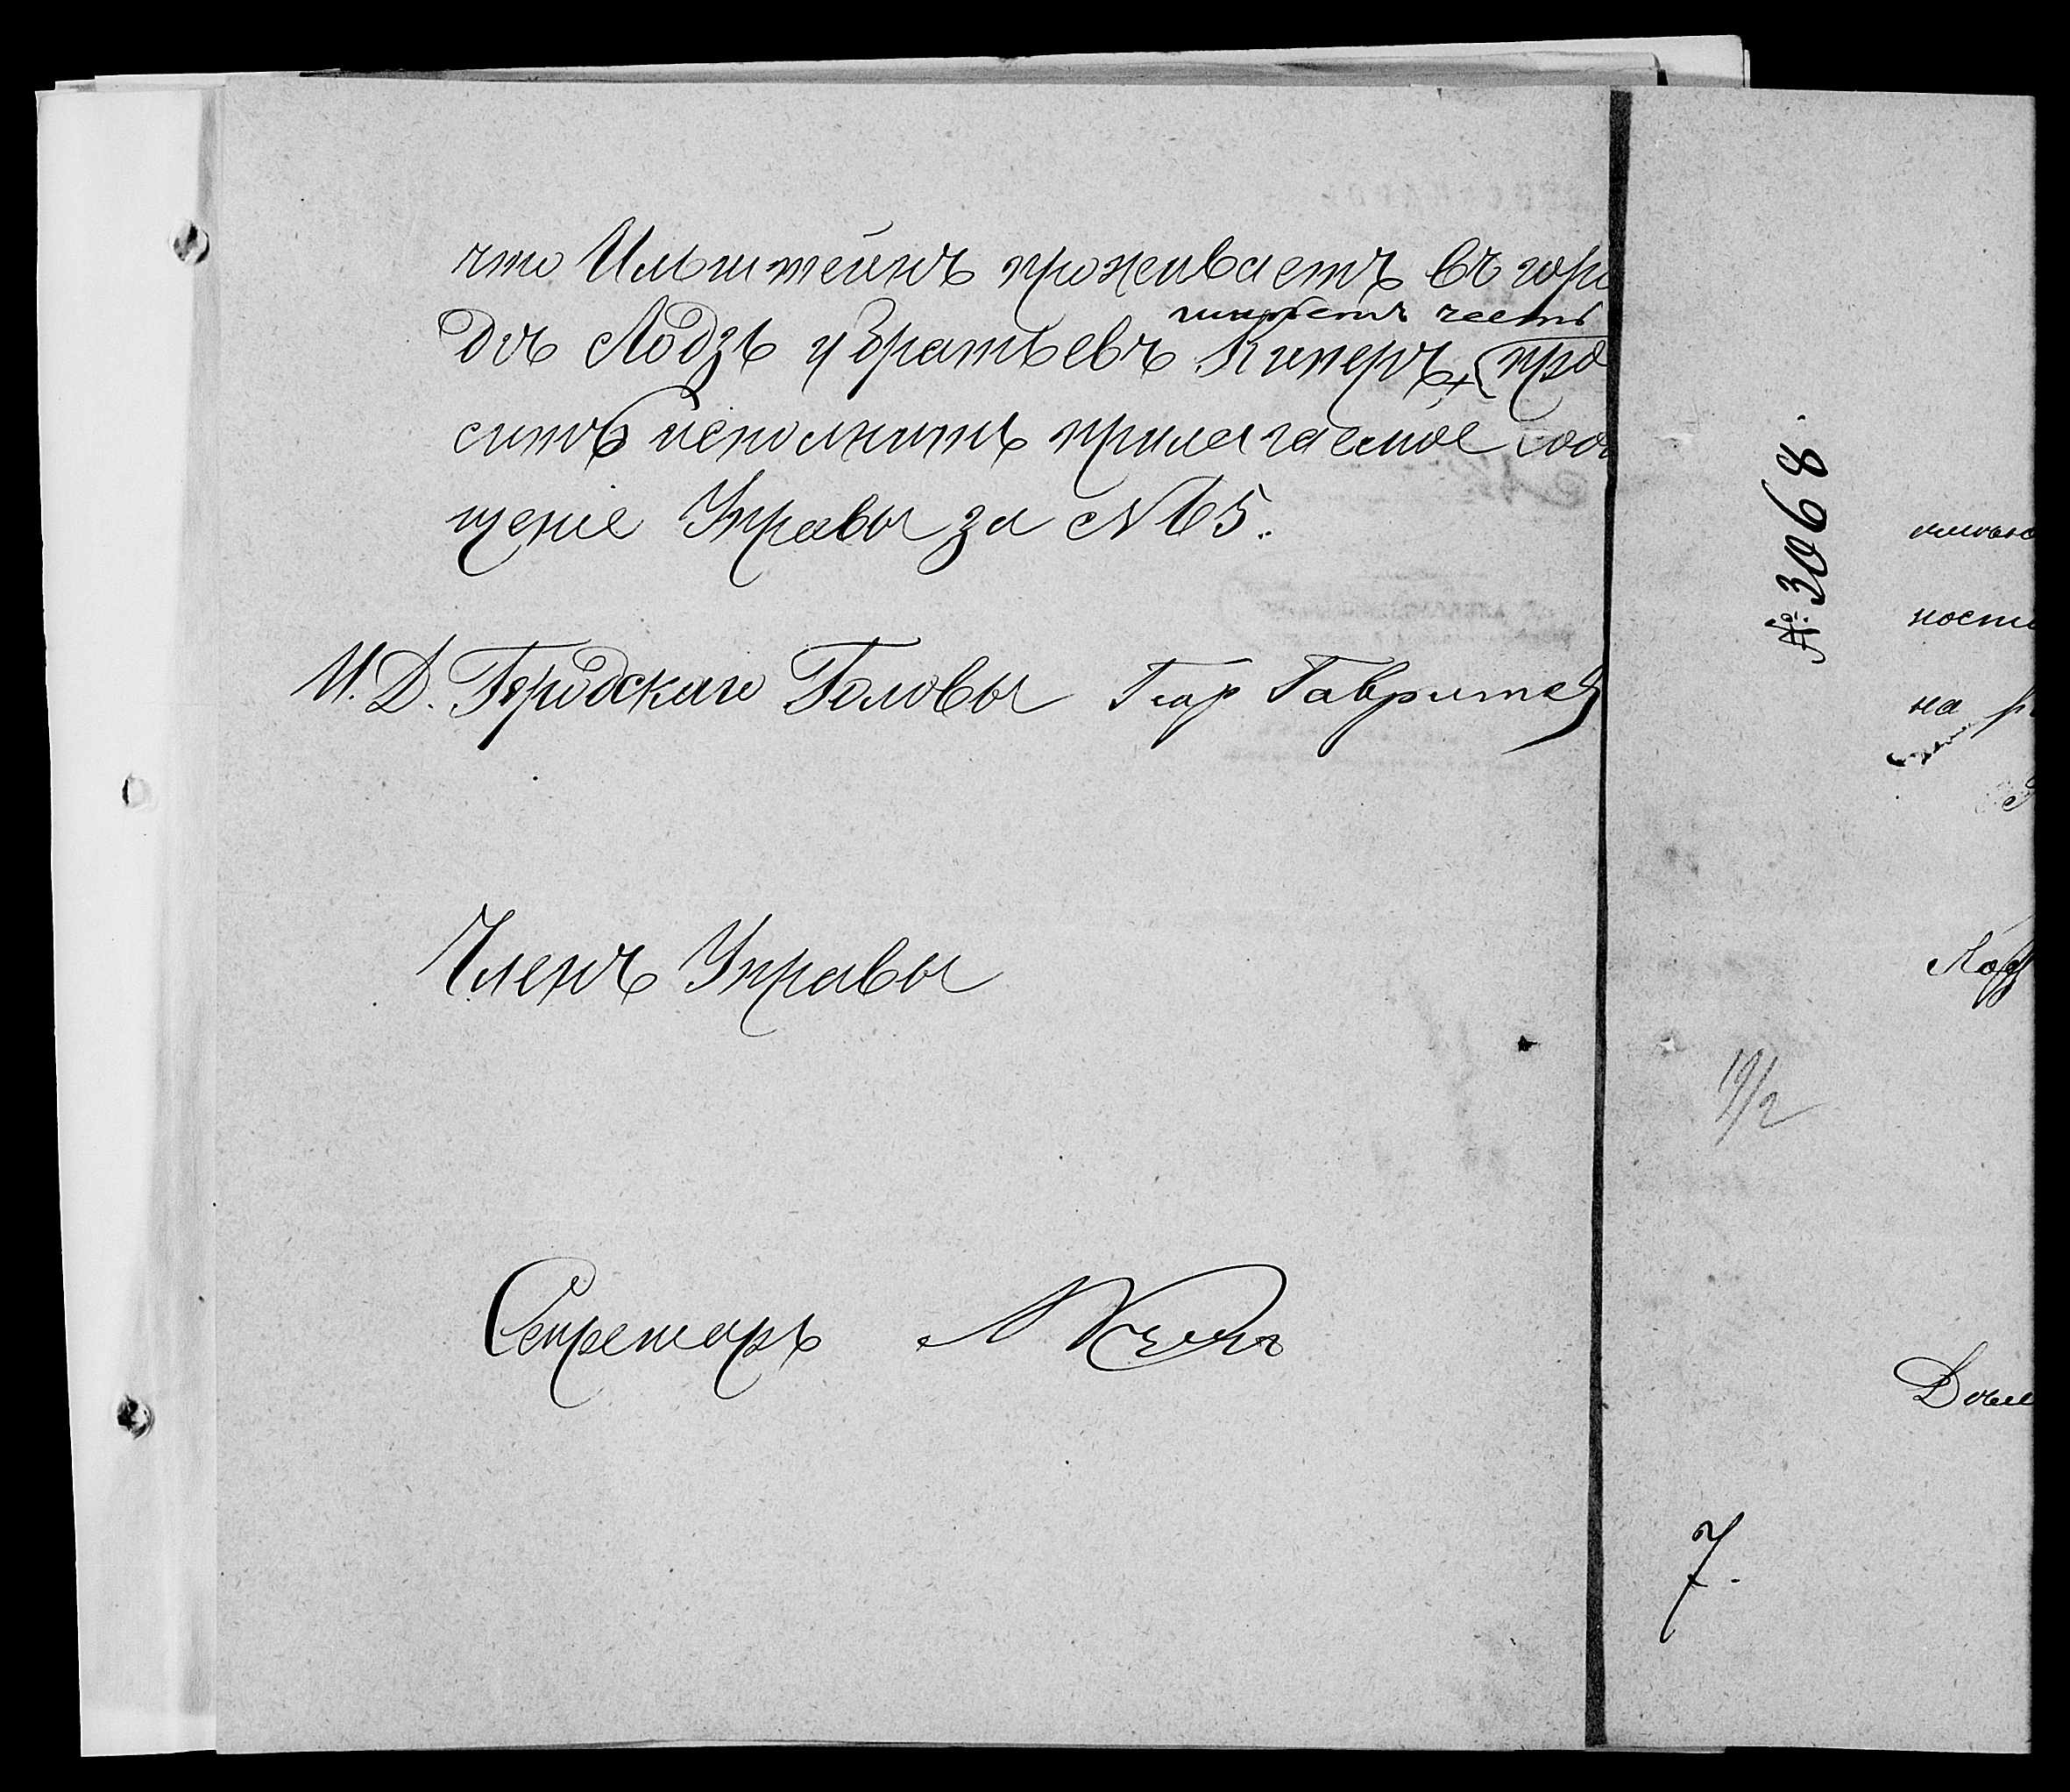 что Ильштейнъ проживаетъ въ горо
дѣ Лодзь у братьевъ Киперъ, про
ситъ исполнить прилагаемое сооб
щеніе Управы за № 65.
И. Д. Городскаго Головы
Членъ Управы
Секретарь
№ 3068.
ность
на
19/2
7.